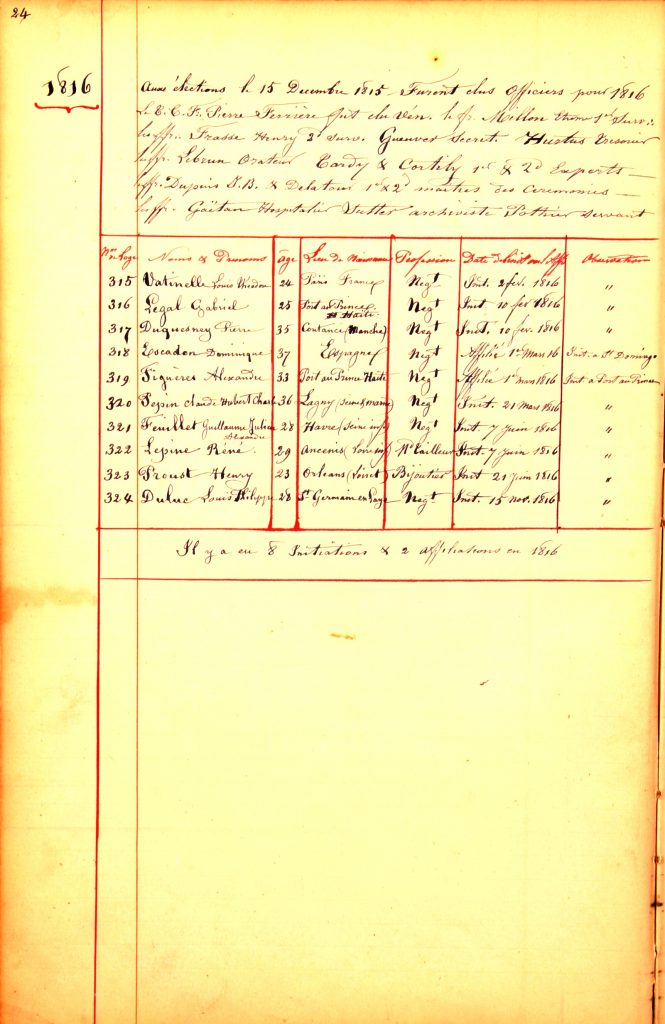 24
1816
Aux élections le 15 Decembre 1815 - Furent élus Officiers pour 1816
Le T. C. F. Pierre Ferrière fut élu Vén. le fr. Millon 1er Surv.
les ffr. Frasse Henry 2e surv. Secret. Tresorier
les ffr. Lebrun Orateur Tardy & Cortily 1er & 2d Experts -
les ffr. Dupuis J. B. & Delatour 1er & 2d maitres des Ceremonies -
les ffr. Gaëtan Hospitalier Sutter archiviste Pothier Servant
Nos de Loge Noms & Prenoms âge Lieu de Naissance Profession Date d'Init. ou d'Aff. Observation
315 Vatinelle Louis 24 Paris France Negt Init. 2 fev. 1816 "
316 Legal Gabriel 25 Port au Prince Haïti Negt Init 10 fev 1816 "
317 Duquesney Pierre 35 Coutance (Manche) Negt Init. 10 fev. 1816 "
318 Escadon Dominique 37 Espagne Negt Affilié 1er Mars 16 Init. à St Domingo
319 Figuères Alexandre 33 Port au Prince Haïti Negt Affilié 1er mars 1816 Init à Port au Prince
320 Pepin Claude Hubert Charles 36 Lagny (Seine & marne) Negt Init. 21 mars 1816 "
321 Feuillet Guillaume Julien Alexandre 28 Havre (Seine inf) Negt Init 7 juin 1816 "
322 Lepine Réné 29 Ancenis (Loire inf) Md Tailleur Init. 7 juin 1816 "
323 Proust Henry 23 Orléans (Loiret) Bijoutier Init 21 juin 1816 "
324 Duluc Louis Philippe 28 St Germain en Laye Negt Init. 15 nov. 1816 "
Il y a eu 8 Initiations & 2 affiliations en 1816